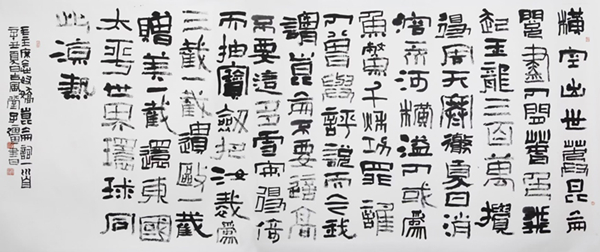 橫空出世莽昆侖
閱盡人間春色飛
起玉龍三百萬攪
得周天寒徹夏日消
溶江河橫溢人或為
魚鱉千秋功罪誰
人曾與評說而今我
謂崑侖不要這高
不要這多雪安得倚
天抽寶劍把汝裁為
三截一截遺歐一截
贈美一截還東國
太平世界環球同
此涼熱
毛主席念奴嬌崑侖詞一首